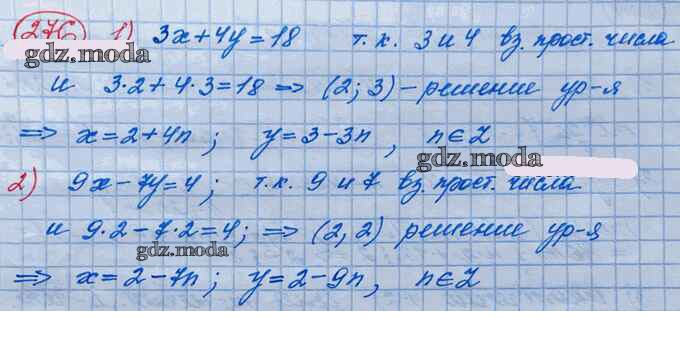 276 1) 3x+4y=18 т.к. 3 и 4 вз. прост. числа
gdz.moda
и 3·2+4·3=18 => (2; 3) – решение ур-я
=> x=2+4n; y=3-3n, n∈Z
gdz.moda
2) 9x-7y=4; т.к. 9 и 7 вз. прост. числа
и 9·2-7·2=4; => (2, 2) решение ур-я
gdz.moda
=> x=2-7n; y=2-9n, n∈Z